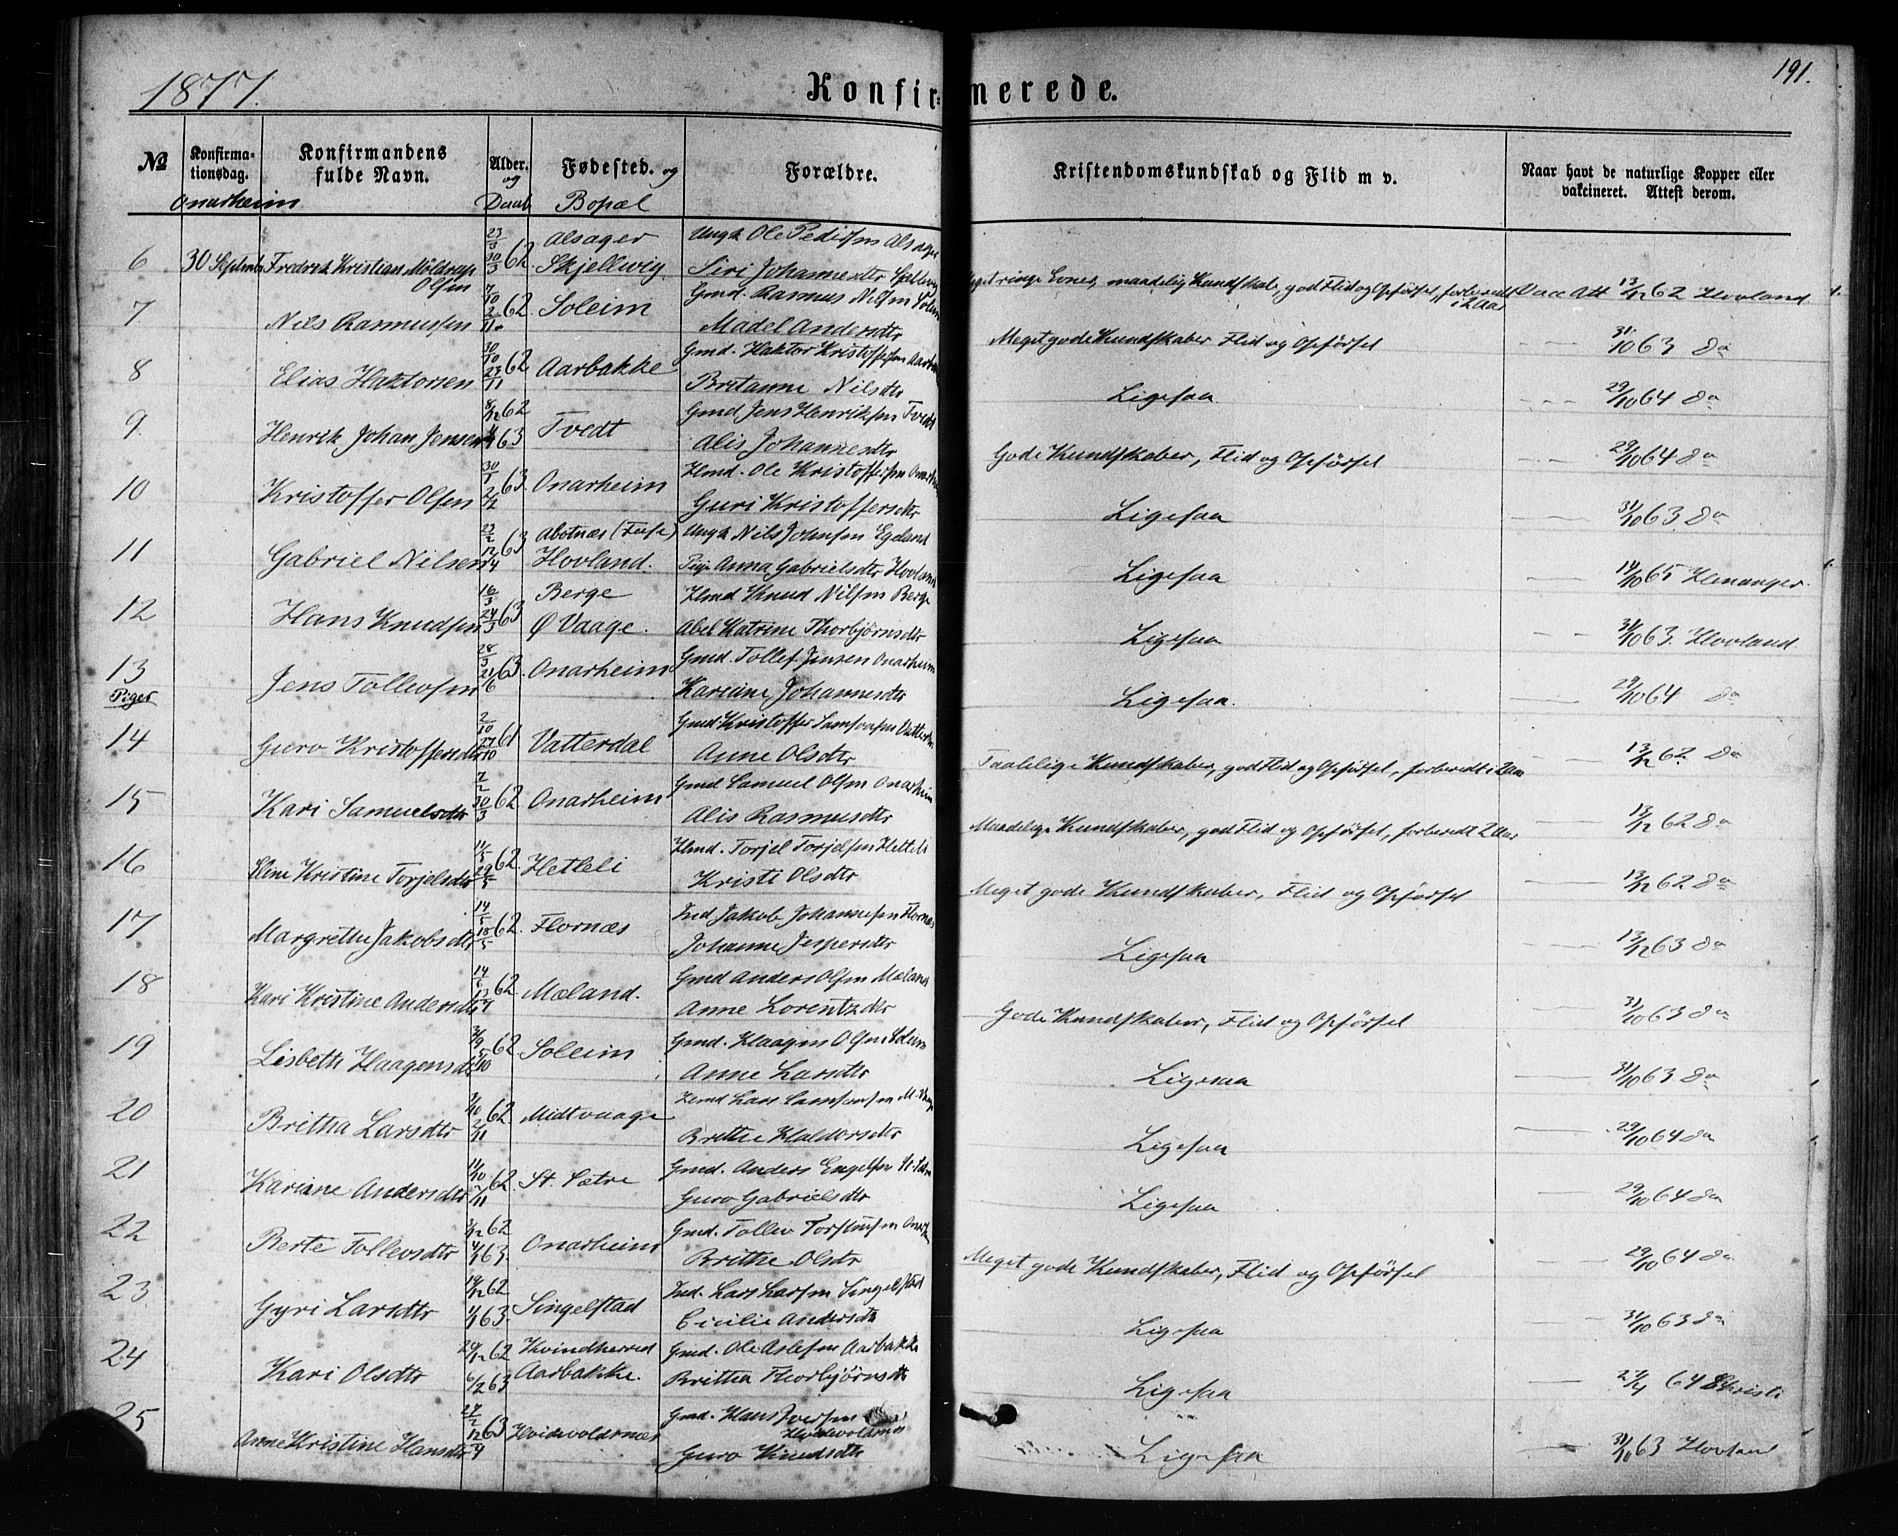 1877. Konfirmerede. 191.
No Konfirmationsdag. Konfirmandens fulde Navn. Alder. og Daab Fødested. og Bopæl Forældre. Kristendomskundskab og Flid m v. Naar havt de naturlige Kopper eller vakcineret. Attest derom.
Onarheim
6 30 Septembr Fredrik Kristian Möldrup Olsen 23/3 30/3 62 Alsager Skjellwig Ungk Ole Siri Johannesdtr Meget ringe Evner, maadelig Kundskab, god Flid og Opførsel, forberedt i 2 Aar Vacc Att 13/12 62 Hovland
7 Nils Rasmussen 62 Soleim Gmd. Rasmus Nilsen Soleim Madel Andersdtr Meget gode Kundskaber Flid og Opførsel 31/10 63 do
8 Elias Haktorsen 30/10 23/11 62 Aarbakke Gmd. Haktor Kristoffersen Aarbak Britanne Nilsdtr Ligesaa 29/10 64 do
9. Henrik Johan Jensen 8/12 62 63 Tvedt Gmd. Jens Henriksen Tvedt Alis Johannesdtr Gode Kundskaber, Flid og Opførsel 29/10 64 do
10 Kristoffer Olsen 63. Onarheim Hmd. Ole Kristoffersen Onarheim Guri Kristoffersdtr Ligesaa 31/10 63 do
11 Gabriel Nilsen 22/2 12/4 63 Hovland. Ungk Nils Johnsen Egeland Pige Anna Gabrielsdtr Hovland Ligesaa 14/10 65 Henanger.
12 Hans Knudsen 16/3 24/3 63 Berge Ø Vaage. Hmd Knud Nilsen Berge Abel Katrine Thorbjørnsdtr Ligesaa 31/10 63. Hovland
13 Jens Tollevsen 28/3 21/6 63 Onarheim Gmd. Tollef Jensen Onarheim Karine Johannesdtr Ligesaa. 29/10 64 do
Piger
14 Guro Kristoffersdtr 2/10 27/10 61 Vatterdal Gmd Kristoffer Samsonsen Anne Olsdtr Taalelige Kundskaber, god Flid og Opførsel, forberedt i 2 Aar 13/12 62 do
15 Kari Samuelsdtr 2/2 30/3 62. Onarheim Gmd Samuel Olsen Onarheim Alis Rasmusdtr Maadelige Kundskaber, god Flid og Opførsel, forberedt 2 Aar 13/12 62 do
16 Eline Kristine Torjelsdtr 14/5 29/5 62. Hetleli Hmd. Torjel Torjelsen Hetleli Kristi Olsdtr Meget gode Kundskaber, Flid og Opførsel 13/12 62 do
17 Margrethe Jakobsdtr 14/5 18/5 62. Flornæs Ind Jakob Johannesen Flornæs Johanne Jespersdtr Ligesaa 13/12 63 do
18 Kari Kristine Andersdtr 62 Mæland. Gmd Anders Olsen Mæland Anne Lorentzdtr Gode Kundskaber, Flid og Opførsel 31/10 63 do
19 Lisbeth Haagensdtr 62 Soleim Gmd. Haagen Olsen Soleim Anne Larsdtr Ligesaa 31/10 63 do
20 Britha Larsdtr 62 Midtvaage Lars Samsonsen Brithe Haldorsdtr Ligesaa 29/10 64 do
21 Kariane Andersdtr 62. St. Sætre Gmd. Anders Engelsen St. Sætre Guro Gabrielsdtr Ligesaa 29/10 64 do
22 Berte Tollevsdtr 62 63. Onarheim Gmd. Tollev Torstensen Brithe Olsdtr Meget gode Kundskaber, Flid og Opførsel 29/10 64 do
23 Gyri Larsdtr 62 63. Singelstad Ind. Lars Larsen Singelstad Cicilie Andersdtr Ligesaa 31/10 63 do
24 Kari Olsdtr 29/12 62 6/2 63 Kvindherred Aarbakke. Gmd. Ole Aslesen Aarbakke Britha Thorbjørnsdtr Ligesaa 27/4 64
25 Anne Kristine Hansdtr 27/2 12/4 63 Hvidevoldsnæs Gmd. Hans Iversen Hvidevoldsnæs Guro Knudsdtr Ligesaa 31/10 63 Hovland